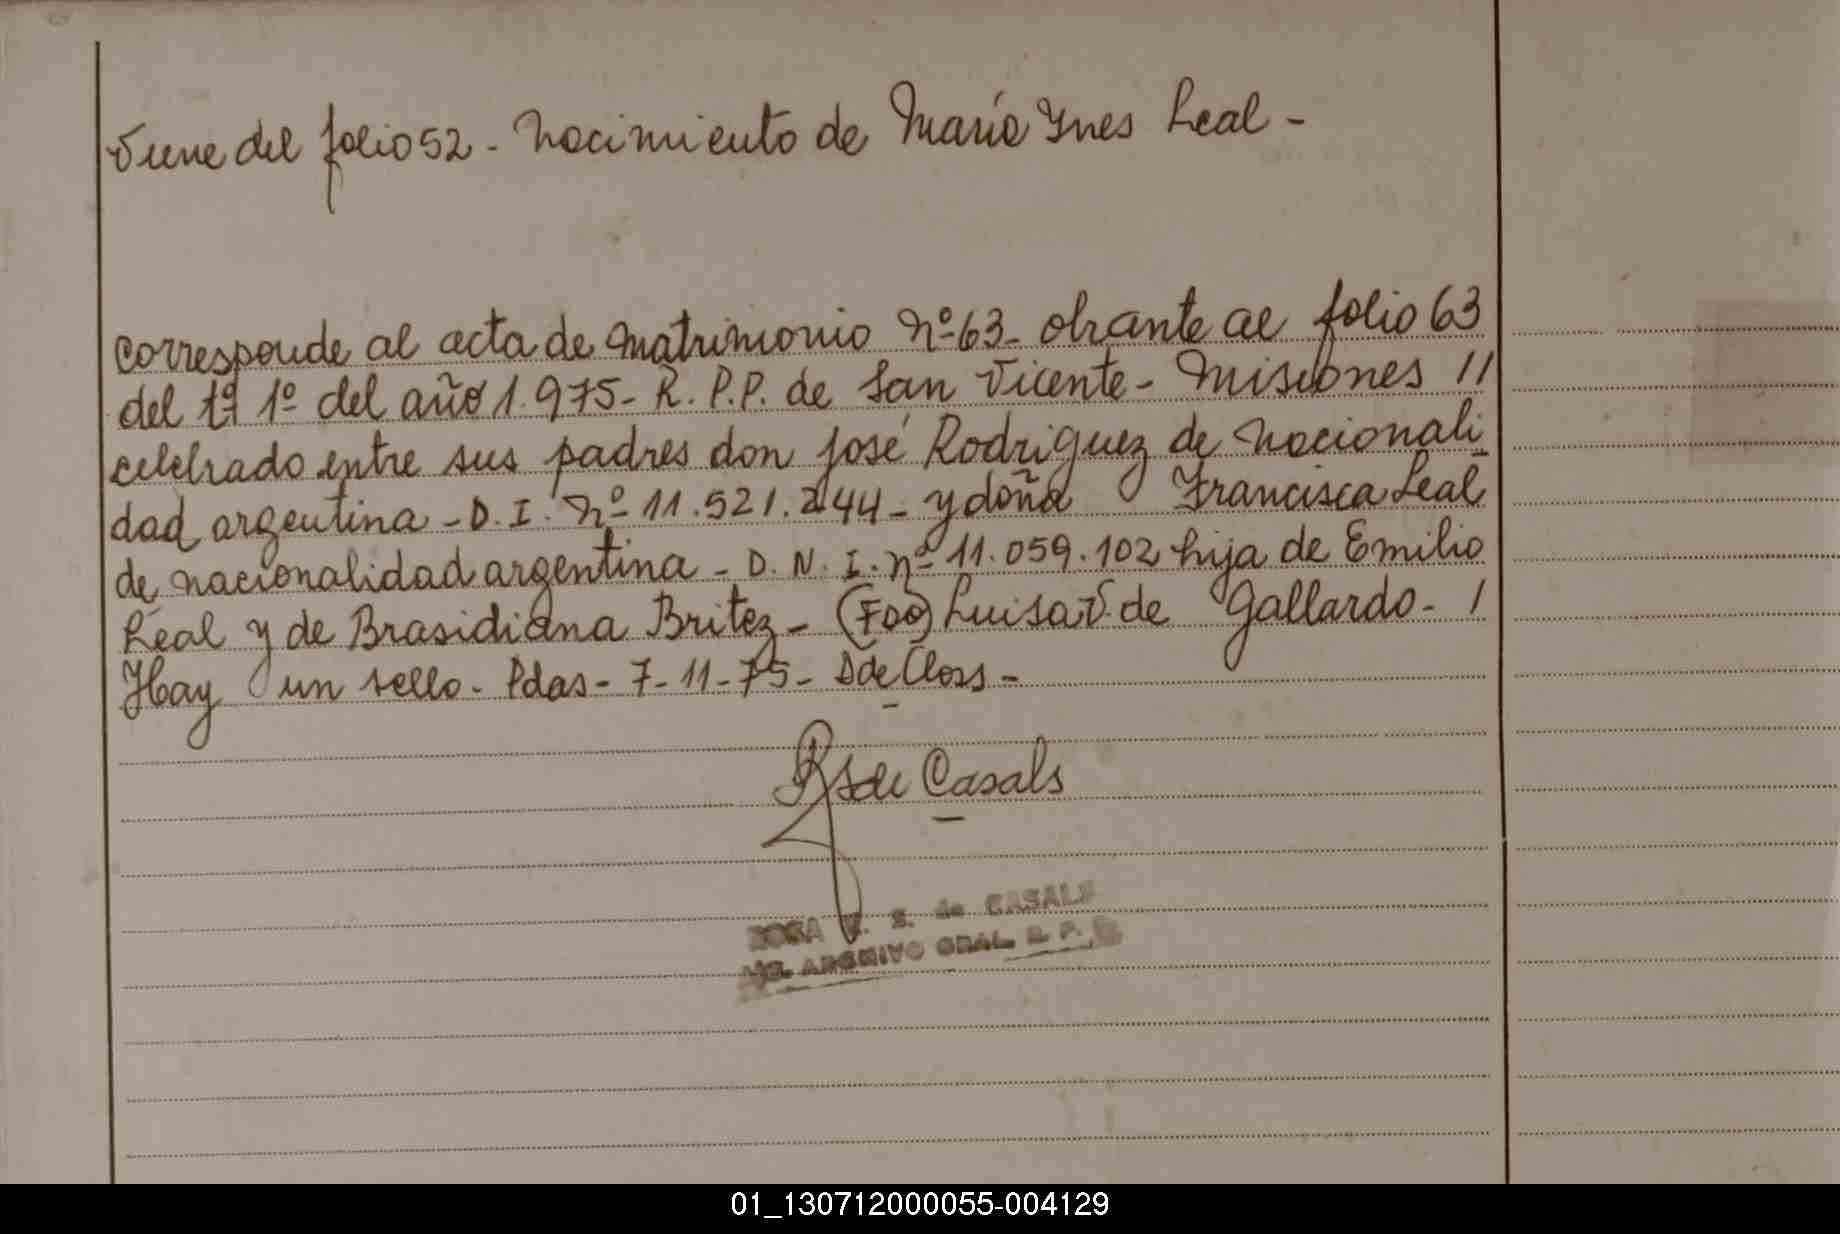 Viene del folio 52 - Nacimiento de María Ynes Leal -
corresponde al acta de matrimonio nº 63 - obrante al folio 63
del tº 1º del año 1.975 - R. P.P. de San Vicente - Misiones //
celebrado entre sus padres don José Rodriguez de nacionali
dad argentina - D. I. nº 11.521.244 - y doña Francisca Leal
de nacionalidad argentina - D. N. I. nº 11.059.102 hija de Emilio
Leal y de Brasidiana Britez - (Fdo) Luisa V. de Gallardo - /
Hay un sello - Pdas - 7-11-75 - D de Closs -
de Casals
ROSA S. de CASALS
ARCHIVO GRAL. R. P.
01_130712000055-004129